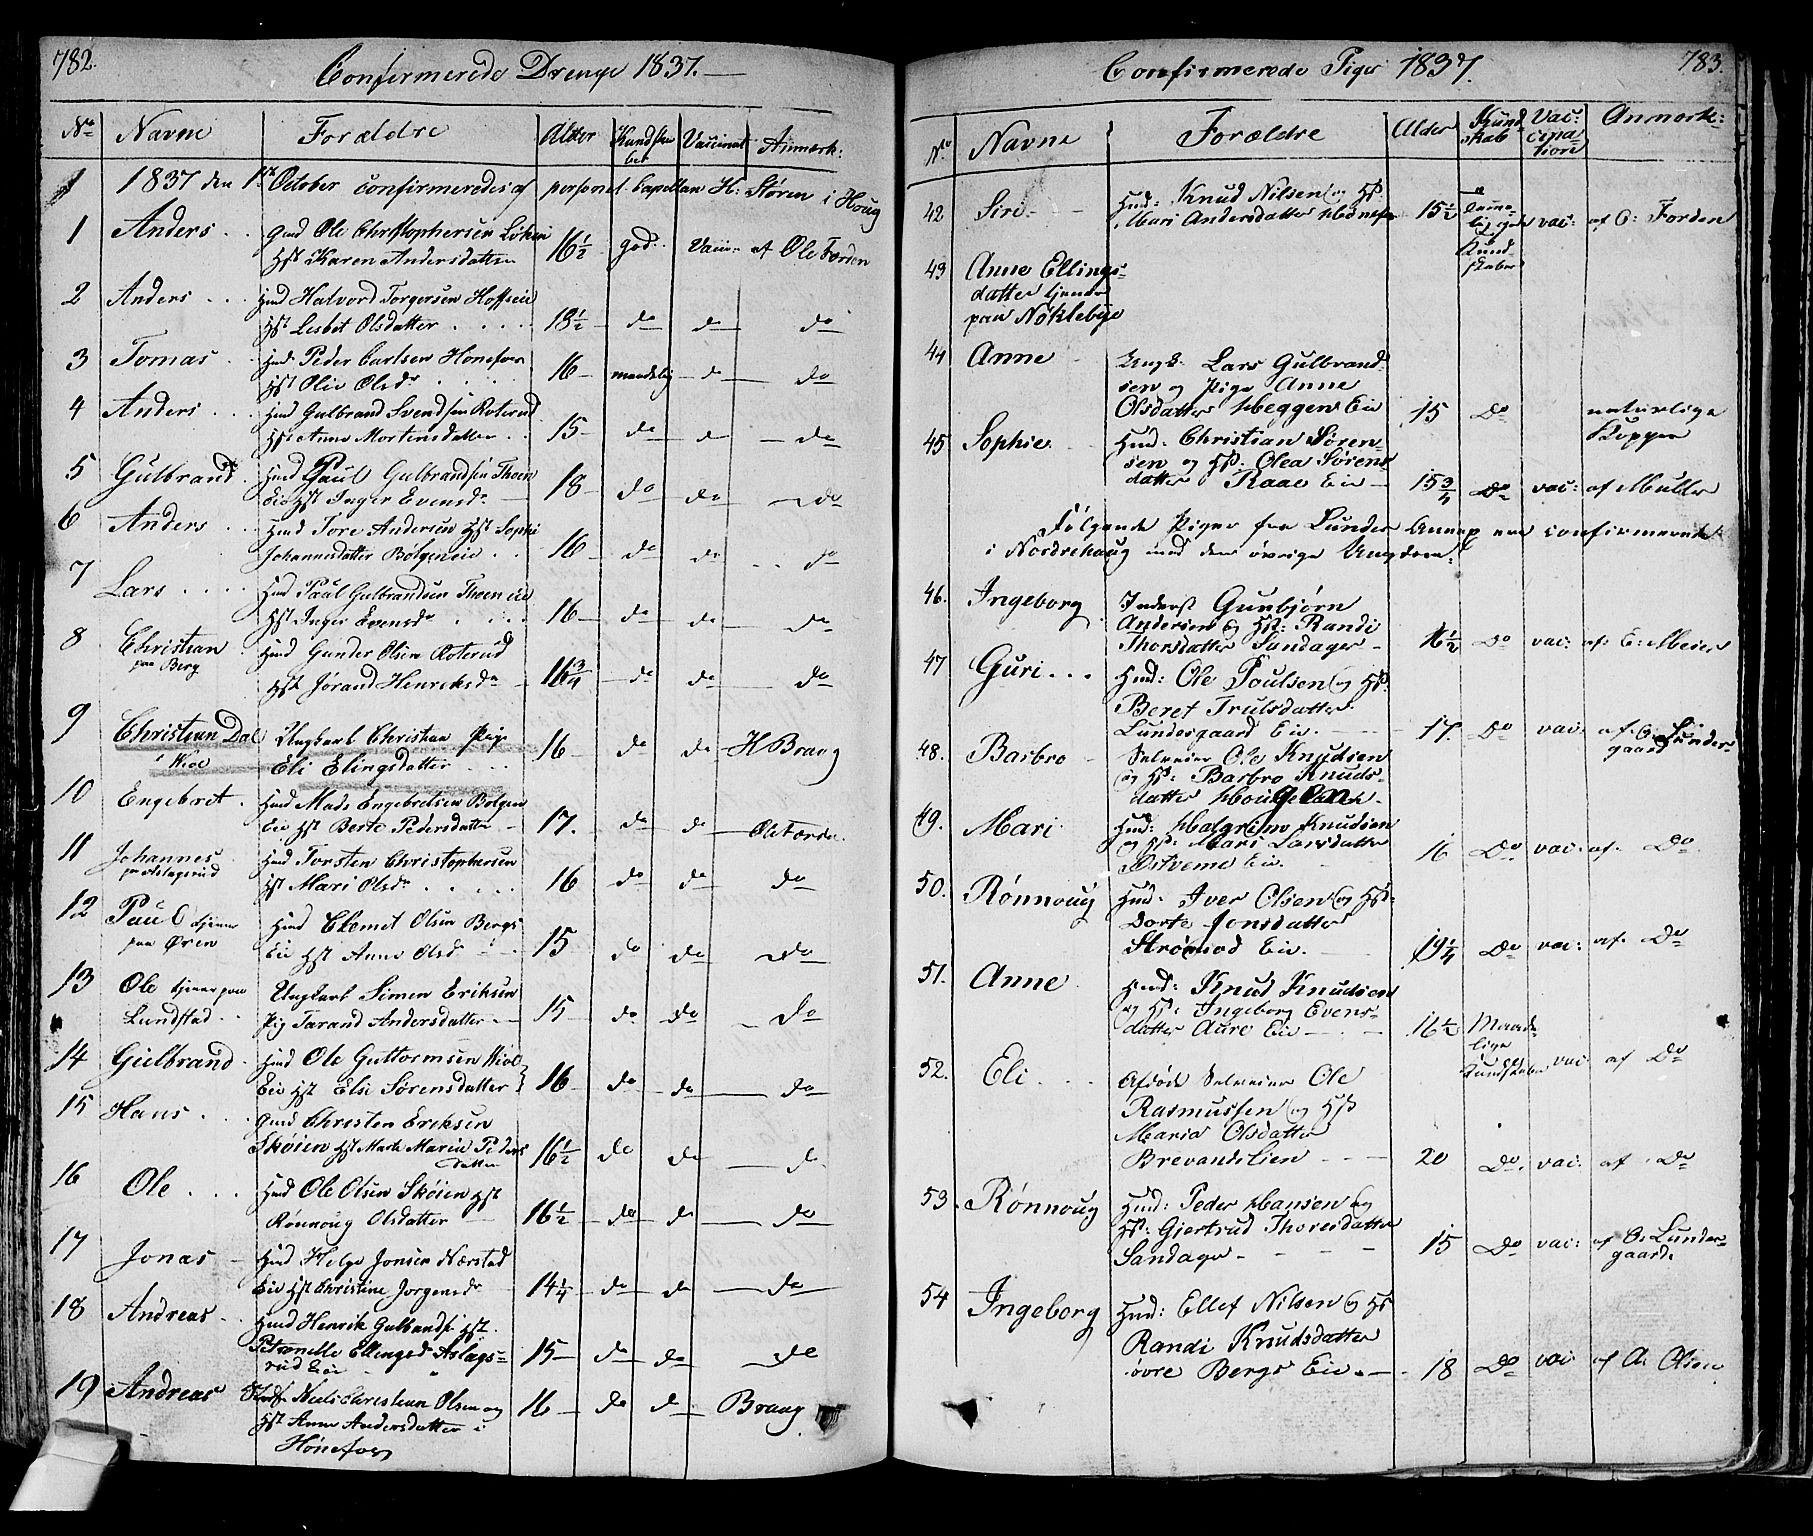 782.
Confirmerede Drenge 1837.
No Navne Forældre Alder Kundskaber Vaccinat Anmerk:
1837 den 1ste October confirmeredes af personel Capellan H: Støren i Houg
1 Anders . . Gmd Ole Christophersen Løken
Hst Karen Andersdatter 16½ god. Vacin- af Ole Forden
2 Anders . . . Hmd Halvord Torgersen Hoffseie
Hst Lisbet Olsdatter . . . . 18½ do do do
3 Tomas . . Hmd. Peder Carlsen Honefoss
Hst Olia Olsdr 16 maadelig do do
4 Anders . . . Hmd Gulbrand Svendsen Roterud
Hst Anne Mortensdatter . . 15 do do do
5 Gulbrand . Hmd Paul Gulbrandsen Thoen
Eie Hst Inger Evensdr 18 do do do
6 Anders . . Hmd Tore Andersen Hst Sophi
Johannesdatter Bolgeneie . . 16 do do do
7 Lars . . . . Hmd Paul Gulbrandsen Thoen eie
Hst Inger Evensdr . . . . 16 do do do
8 Christian
paa Berg Hmd Gunder Olsen Roterud
Hst Jørand Henriksdr 16¾ do do do
9 Christian Dal
i Hiol Ungkarl Christian Pige
Eli Elingsdatter . . . 16 do do H Braag
10 Engebret . Hmd Mads Engebretsen Bolgen
Eie Hst Berte Pedersdatter 17. do do Ole Forde.
11 Johannes
paa Aslagsrud Hmd Torsten Christophersen
Hst Mari Olsdr . . . . . 16 do do do
12 Paul tjener
paa Øren Hmd Clemet Olsen Bergs
Eie Hst Anne Olsd 15 do do do
13 Ole tjener paa
Lundstad . . Ungkarl Simen Eriksen
Pig Tarand Andersdatter 15 do do do
14 Gulbrand . Hmd Ole Guttormsen Hiol
Eie Hst Elsi Sørensdatter 16 do do do
15 Hans . . . Gmd Christen Eriksen
Skøien Hst Marte Marie Peders
datter 16½ do do do
16 Ole . . . Hmd Ole Olsen Skøien Hst
Rønnoug Olsdatter 16½ do do do
17 Jonas Hmd Helge Jonsen Nærstad
Eie Hst Christine Jorgensdr 14¼ do do do
18 Andreas . . Hmd Henrik Gulbrands. Hst.
Petronelle Ellingsd Aslags-
rud Eie 15 do do do
19 Andreas Niels Christian Olsen og
Hst Anne Andersdatter i
Hønefos 16 do do Braag
783.
Confirmerede Piger 1837.
No Navne Forældre Alder Kundskab Vaccinationi Anmærk:
42 Siri. Hmd: Knud Nilsen og Hst
Mari Andersdatter Hønefos 15½ temmelig gode Kundskaber vac: af O: Forden
43 Anne Ellings-
datter tjener
paa Nøklebye
44 Anne Ungk. Lars Gulbrand-
sen og Pige Anne
Olsdatter Heggen Eie 15 Do naturlige
Kopper
45 Sophie. Hmd: Christian Søren-
sen og Hst. Olea Sørens
datter Raae Eie 15¾ Do vac: af Muller
Følgende Piger fra Lunder Annex ere confirmerede
i Nordrehaug med den øvrige Ungdom:
46. Ingeborg Inderst Gunbjørn
Andersen og Hst: Randi
Thorsdatter Sandager 16½ Do vac: af E: Meier
47 Guri . . . Hmd: Ole Poulsen og Hst.
Beret Trulsdatter
Lundesgaard Eie. 17. Do vac: af O: Lunder-
gaard
48. Barbro Selveier Ole Knudsen
og Hst: Barbro Knuds-
datter Hougen
49. Mari Hmd: Halgrim Knudsen
og Hst. Mari Larsdatter
Østveme Eie. 16 Do vac: af. Do
50. Rønnoug Hmd: Iver Olsen og Hst:
Dorte Jonsdatter
Strømsod Eie. 19¼ Do vac: af. Do
51. Anne Hmd: Knud Knudsen
og Hst: Ingeborg Evens-
datter Aure Eie 16½ Maade-
lige
Kundskaber vac: af Do
52. Eli . . . Afdøde Selveier Ole
Rasmussen og Hst
Maria Olsdatter
Brevandslien 20 Do. vac: af Do
53. Rønnoug Hmd: Peder Hansen og
Hst: Giertrud Thoresdatter
Sandager 15 Do vac: af O: Lunder-
gaard.
54 Ingeborg Hmd: Ellef Nilsen og Hst
Randi Knudsdatter
øvre Bergs Eie . 18 Do vac: af A: Olsen